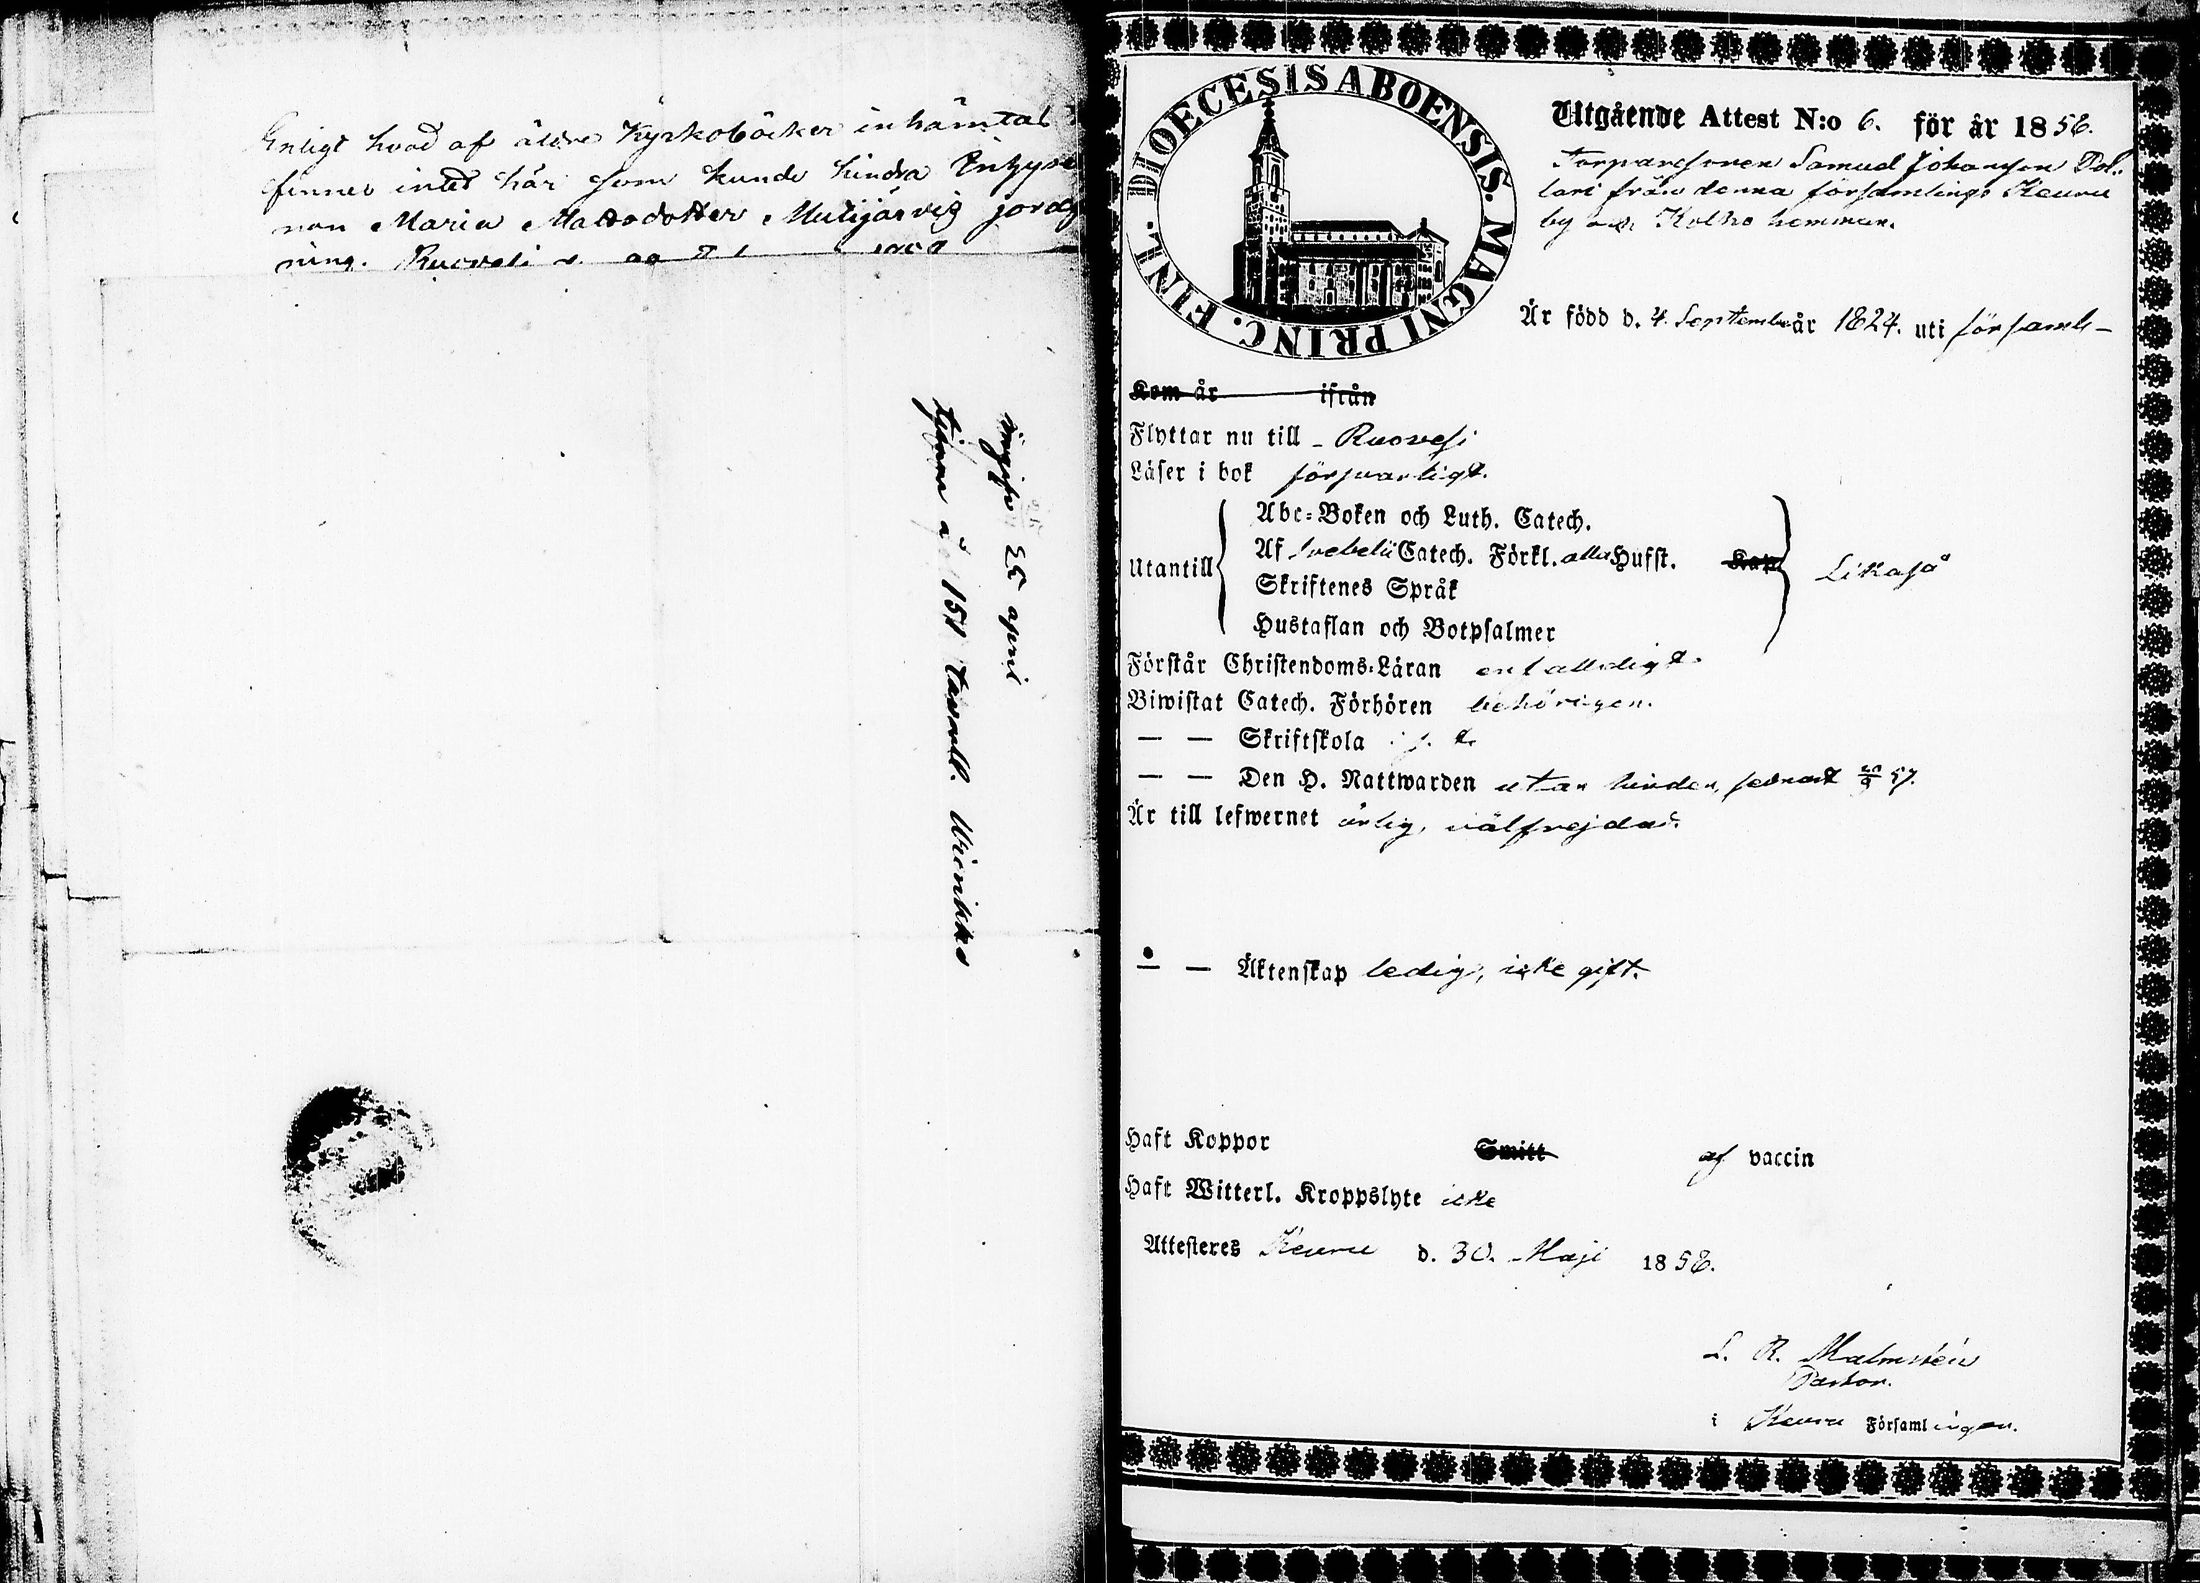 Enligt hvad af äldre Kyrkoböcker inhämtat
finnes intet här som kunde hindra
Maria Mattsdotter jord
ning. Ruovesi
25 april
DIOECESIS ABOENSIS. MAGNI PRINC. FINL.
Utgående Attest N:o 6. för år 1858.
Torparesonen Samuel Johansson
lari från denna församlings Keuru
by och Kolho hemman.
Är född d. 4. September år 1824. uti församl-
Kom år ifrån
Flyttar nu till - Ruovesi
Läser i bok försvarligt.
Utantill
Abc-Boken och Luth. Catech.
Af Svebelii Catech. Förkl. alla Hufst. Kap
Skriftenes Språk
Hustaflan och Botpsalmer
Likaså
Förstår Christendoms-Läran enfalldigt.
Biwistat Catech. Förhören behörigen.
— — Skriftskola
— — Den H. Nattwarden utan hinder, sednast 57.
Är till lefwernet ärlig, välfrejdad.
— — Äktenskap ledig, icke gift.
Haft Koppor Smitt af vaccin
Haft Witterl. Kroppslyte icke
Attesteres Keuru d. 30. Maji 1858.
L. R. Malmstén
Pastor.
i Keuru Församlingen.